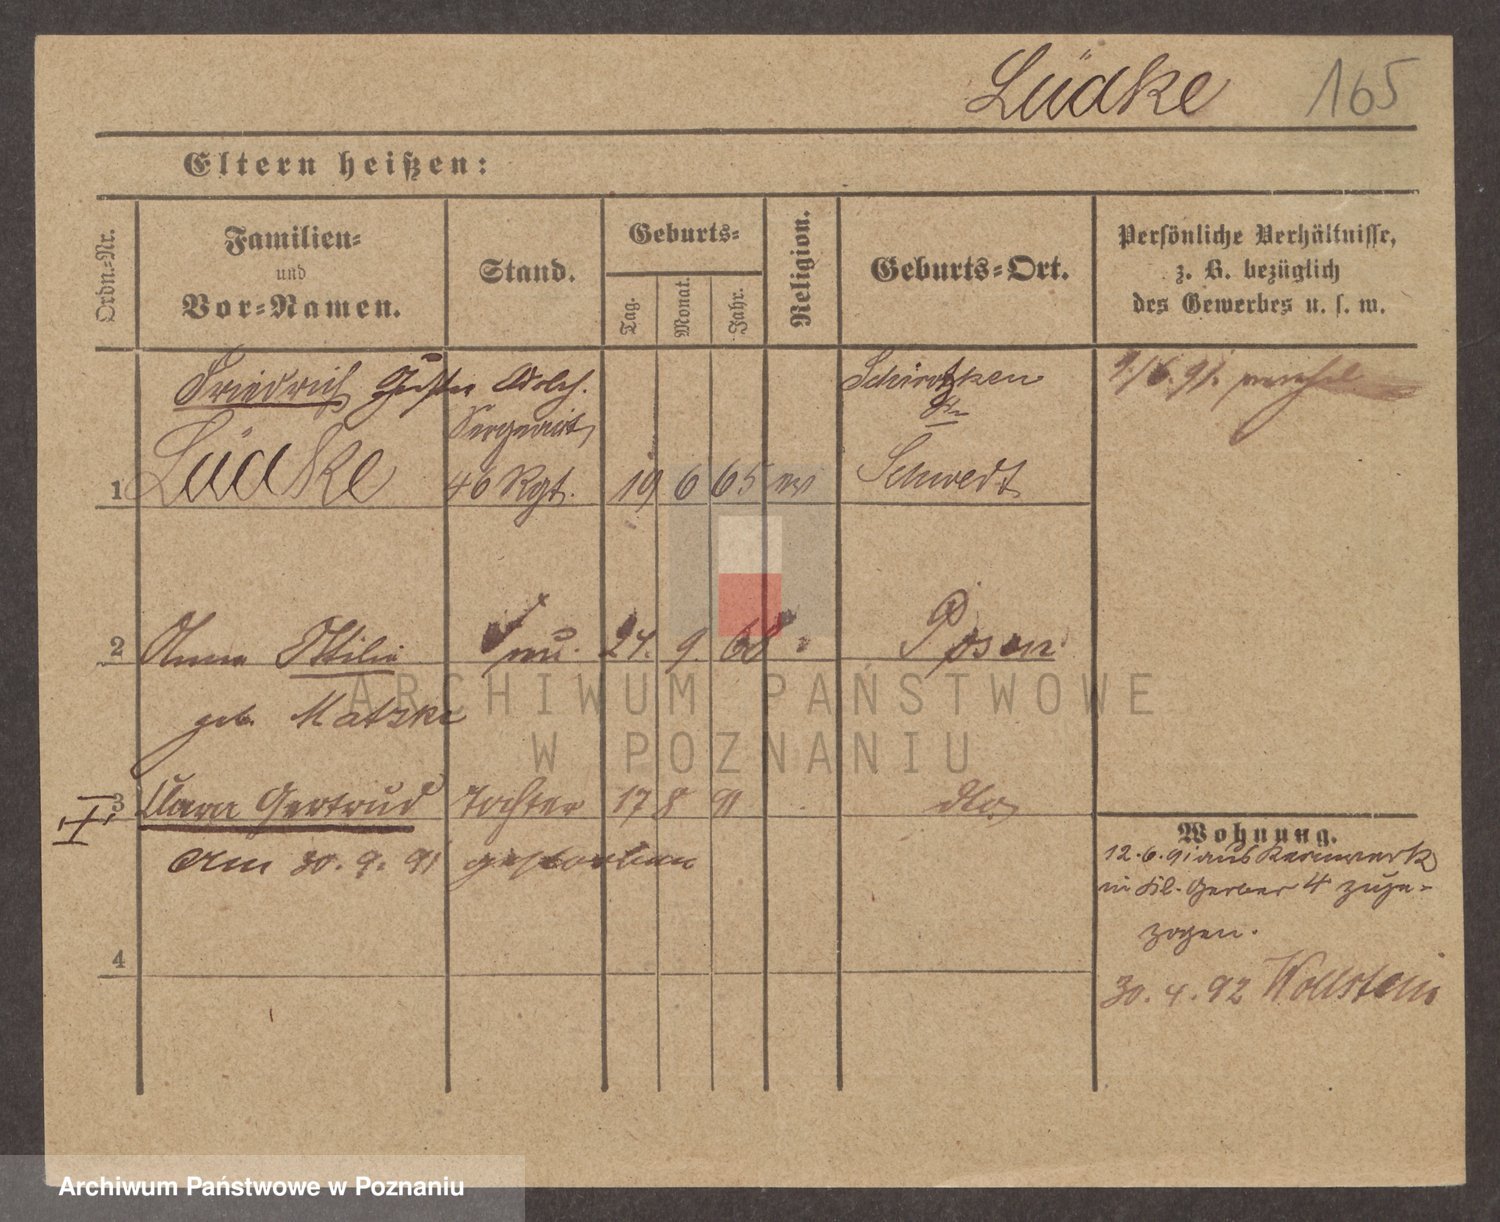 Lüdke 165
Eltern heißen:
Ordn.-Nr.
Familien-
und
Vor-Namen.
Stand.
Geburts-
Tag.
Monat.
Jahr.
Religion.
Geburts-Ort.
Persönliche Verhältnisse,
z. B. bezüglich
des Gewerbes u. s. w.
Friedrich Gustav Adolf.
Sergeant
1 Lüdke 46 Rgt. 19 6 65 ev
Schwedt
2 Anna Ottilie Frau. 24. 9. 68 Posen
geb. Matzke
3 Clara Gertrud Tochter 17 8 91 dto
Am 30. 9. 91 gestorben
4
Wohnung.
12. 6. 91 aus Kernwerk
in Kl. Gerber 4 zuge-
zogen.
30. 4. 92 Wollstein
ARCHIWUM PAŃSTWOWE
W POZNANIU
Archiwum Państwowe w Poznaniu